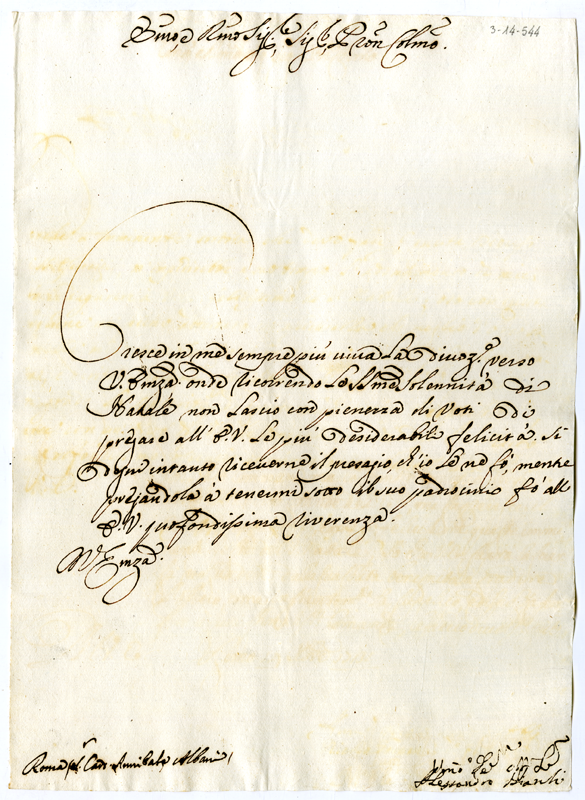 Emo, e Rmo Sig.re, Sig.r, Pron Colmo.
3-14-544
Cresce in me sempre più viva La divoz.e verso
V. Emza. onde ricorrendo Le SS.me Solennità di
Natale non Lascio con pienezza di Voti di
pregare all' E. V. Le più desiderabili felicità. Si
degni intanto riceverne il presagio, ch'io Le ne fò, mentre
pregandola à tenermi sotto il suo padrocinio fò all'
E. V. profondissima riverenza.
V. Emza.
Roma Card. Annibale Albani
Alessandro